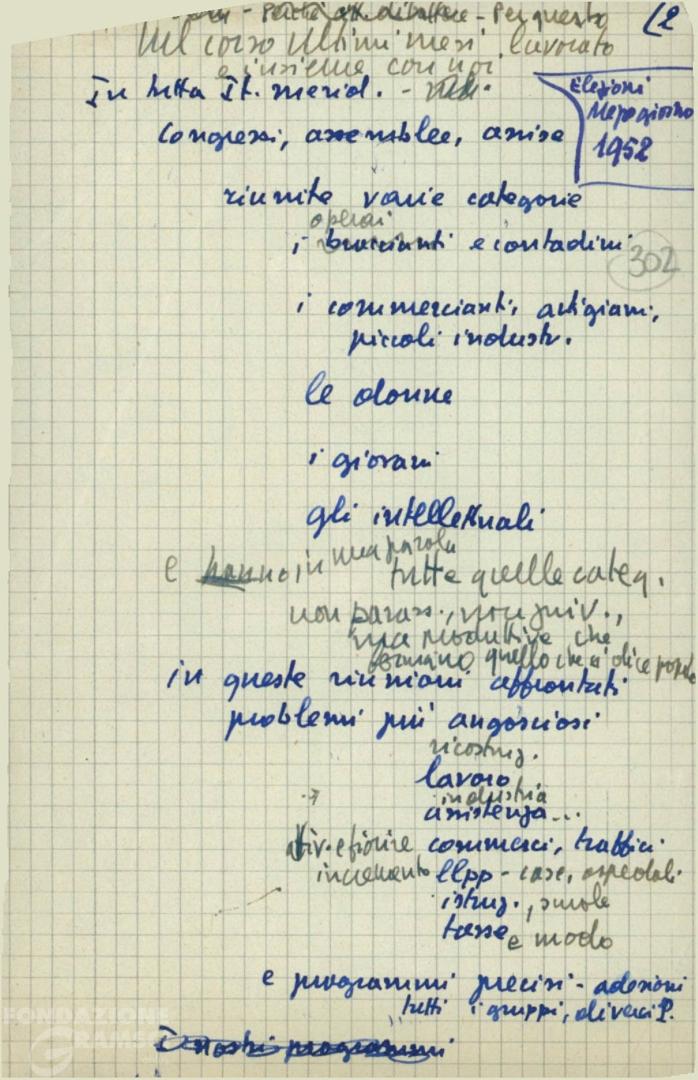 (2
- Per questo
Nel corso ultimi mesi lavorato
e insieme con noi
In tutta It. merid. -
Elezioni
Mezzogiorno
1952
Congressi, assemblee, assise
riunite varie categorie
operai
i braccianti e contadini
302
i commercianti, artigiani,
piccoli industr.
le donne
i giovani
gli intellettuali
e hanno in una parola
tutte quelle categ.
non parass., non priv.,
ma produttive che
formano quello che si dice popolo
in queste riunioni affrontati
problemi più angosciosi
ricostruz.
lavoro
industria
assistenza...
attiv. e fiorire commerci, traffici
incremento llpp - case, ospedali
istruz., scuole
tasse e modo
e programmi precisi - adesioni
tutti i gruppi, diversi P.
I nostri programmi
FONDAZIONE
GRAMSCI